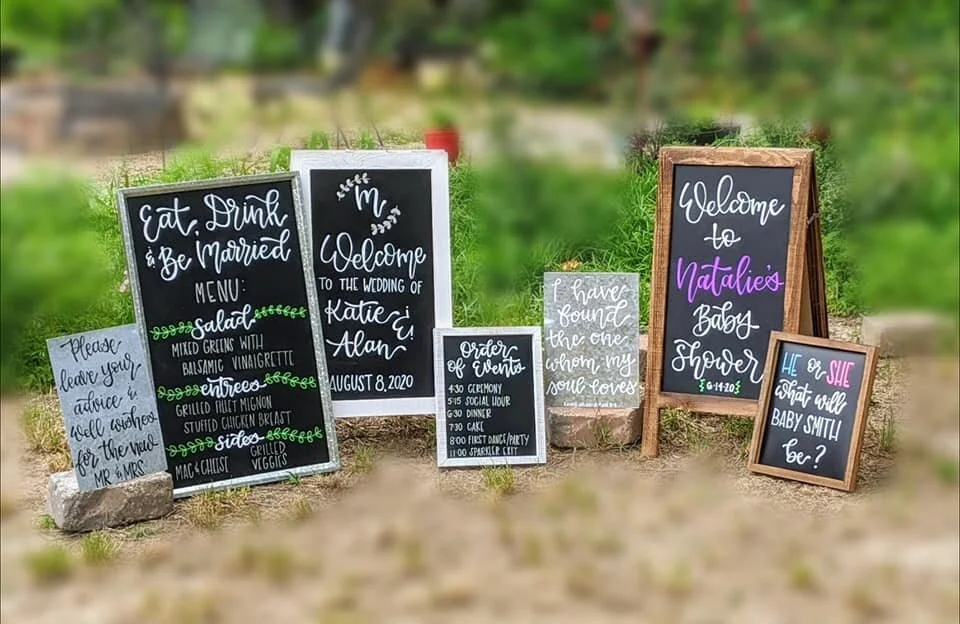 Please
leave your
advice &
well wishes
for the new
MR & MRS
Eat, Drink
& Be Married
MENU:
Salad
MIXED GREENS WITH
BALSAMIC VINAIGRETTE
entrees
GRILLED FILET MIGNON
STUFFED CHICKEN BREAST
sides
MAC & CHEESE
GRILLED
VEGGIES
M
Welcome
TO THE WEDDING OF
Katie &
Alan
AUGUST 8, 2020
Order
of Events
4:30 CEREMONY
5:15 SOCIAL HOUR
6:30 DINNER
7:30 CAKE
8:00 FIRST DANCE/PARTY
11:00 SPARKLER EXIT
I have
found
the one
whom my
soul loves
Welcome
to
Natalie's
Baby
Shower
6·14·20
HE or SHE
what will
BABY SMITH
be?